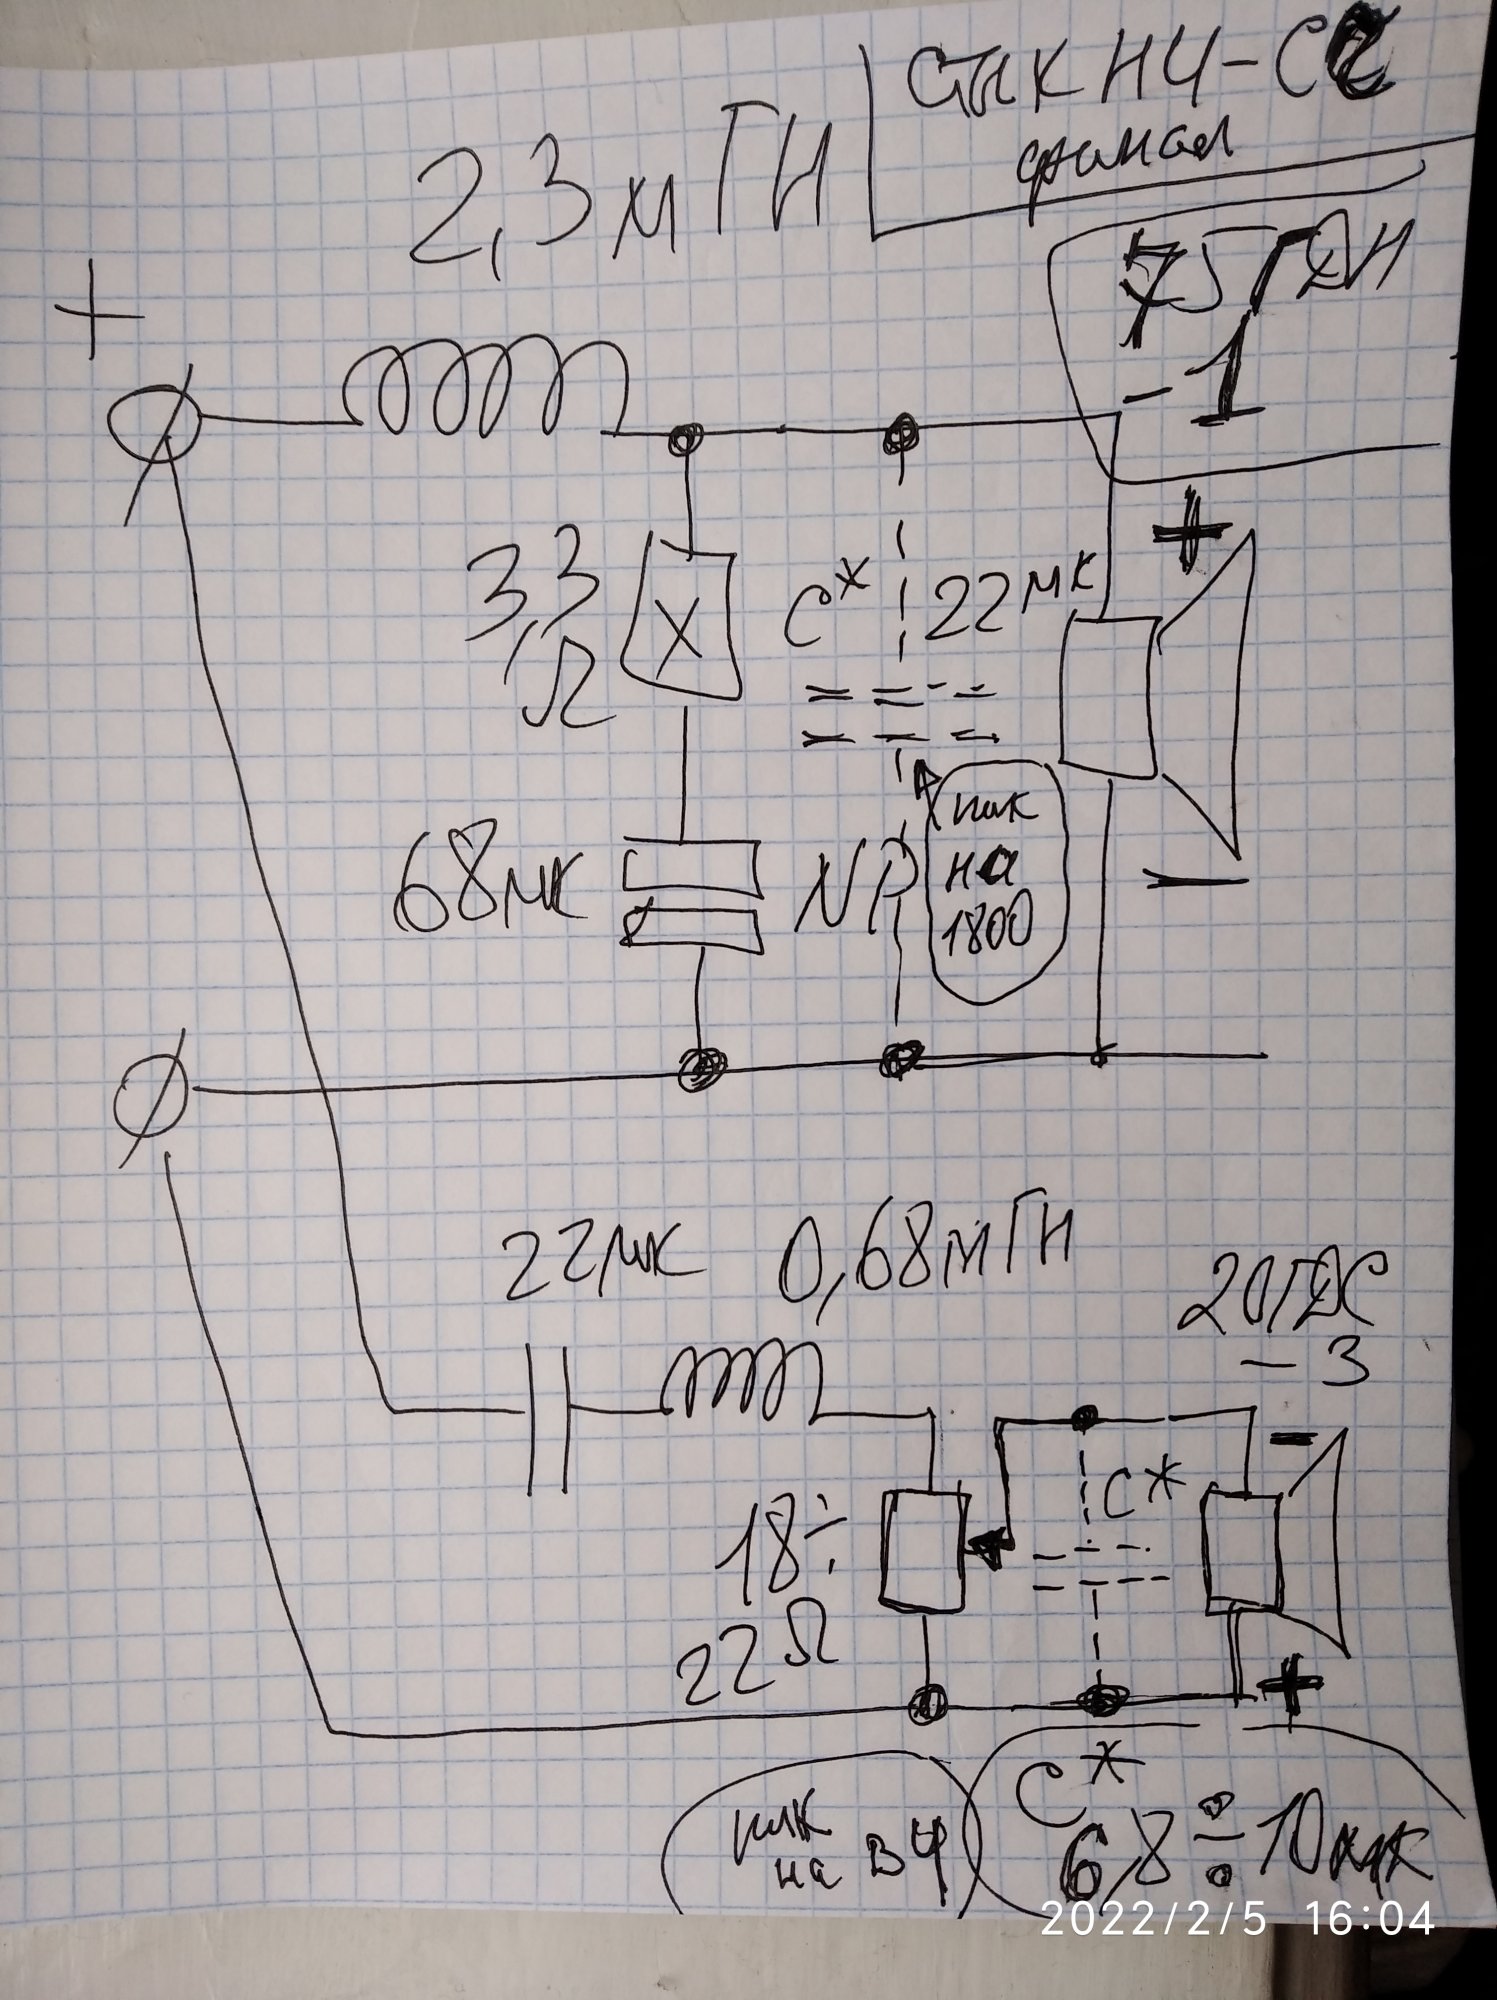 СТЫК НЧ-СЧ
финал
2,3 мГН
75ГДН
-1
+
+
3,3
Ω
X
C* 22мк
пик
на
1800
68мк
NP
-
22мк
0,68мГН
20ГДС
-3
-
C*
18÷
22Ω
+
пик
на ВЧ
C*
6,8÷10мк
2022/2/5 16:04